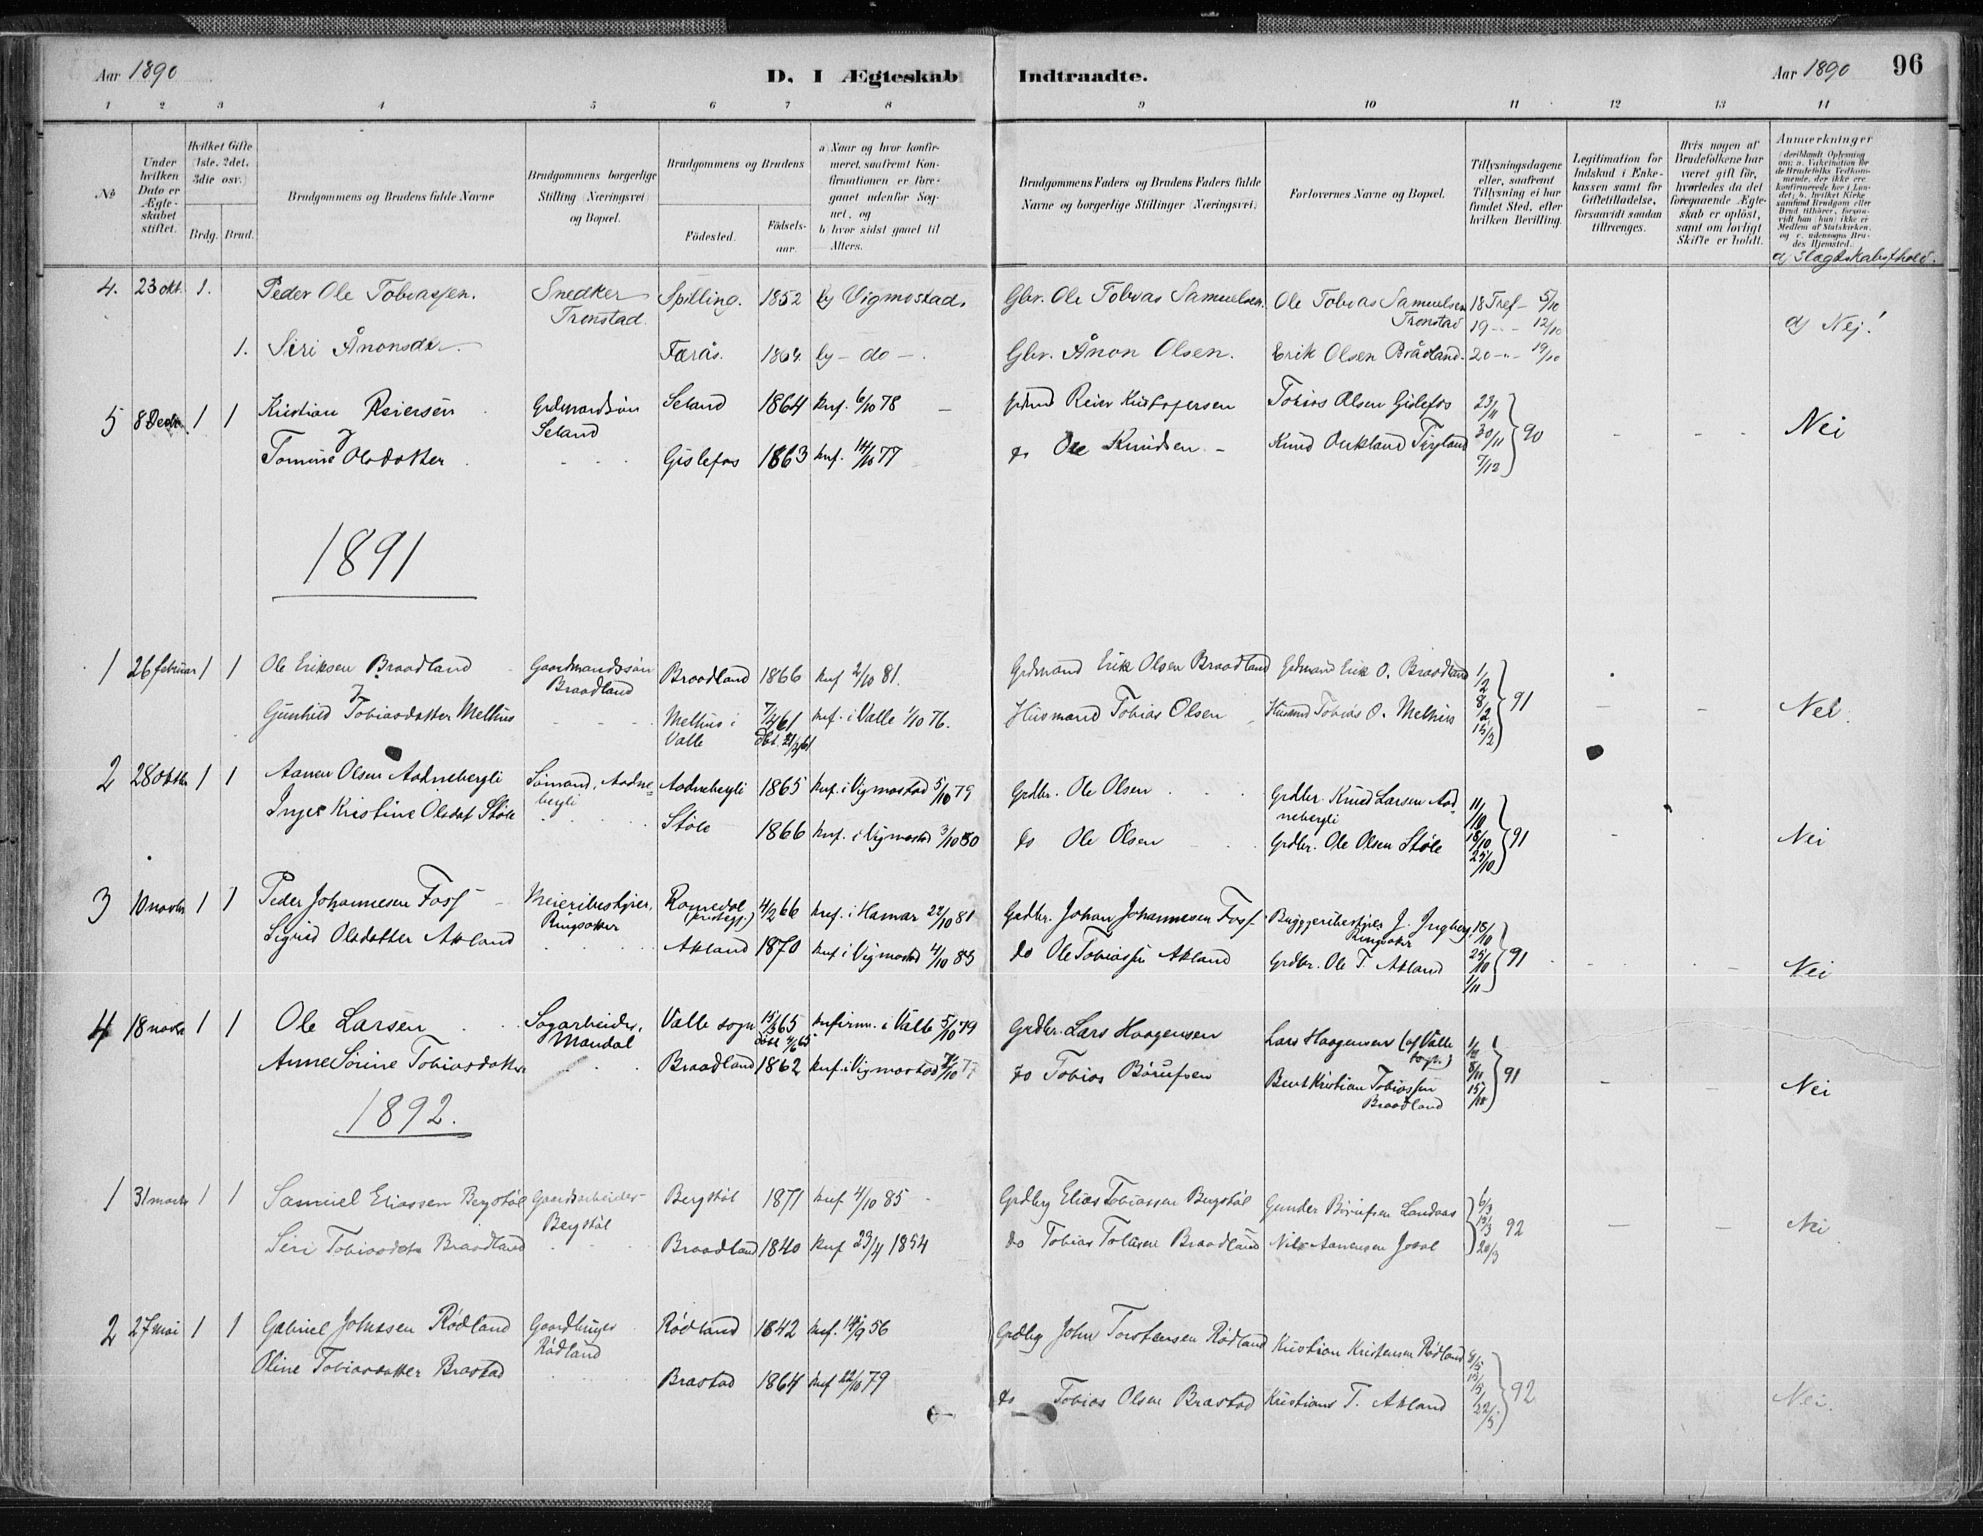 Aar 1890
D. I Ægteskab Indtraadte.
Aar 1890 96
1 2 3 4 5 6 7 8 9 10 11 12 13 14
№
Under hvilken Dato er Ægteskabet stiftet.
Hvilket Gifte (1ste, 2det, 3die osv.)
Brdg. Brud.
Brudgommens og Brudens fulde Navne
Brudgommens borgerlige Stilling (Næringsvei) og Bopæl.
Brudgommens og Brudens
Fødested. Fødselsaar.
a) Naar og hvor konfirmeret, saafremt Konfirmationen er foregaaet udenfor Sognet, og
b) hvor sidst gaaet til Alters.
Brudgommens Faders og Brudens Faders fulde Navne og borgerlige Stillinger (Næringsvei).
Forlovernes Navne og Bopæl.
Tillysningsdagene eller, saafremt Tillysning ei har fundet Sted, efter hvilken Bevilling.
Legitimation for Indskud i Enkekassen samt for Giftetilladelse, forsaavidt saadan tiltrænges.
Hvis nogen af Brudefolkene har været gift før, hvorledes da det foregaaende Ægteskab er opløst, samt om lovligt Skifte er holdt.
Anmærkninger
(deriblandt Oplysning om: a. Vakcination for de Brudefolks Vedkommende, der ikke ere konfirmerede her i Landet, b. hvilket Kirkesamfund Brudgom eller Brud tilhører, forsaavidt han (hun) ikke ei Medlem af Statskirken, og c. udensogns Brudes Hjemsted.
d) Slægtskabsfhold.
4. 23 okt. 1. Peder Ole Tobiassen. Snedker Tronstad. Spilling. 1852 b) Vigmostad. Gbr. Ole Tobias Samuelsen. Ole Tobias Samuelsen Tronstad 18 Tref - 5/10
19 - " - 12/10
d) Nej!
1. Siri Ånonsdtr Færås. 1864. b) - do - . Gbr. Ånon Olsen. Erik Olsen Brådland. 20 - " - 19/10
5 8 Decbr. 1 1 Kristian Reiersen Grdmandssøn Seland Seland 1864 knf. 6/10 78 Reier Kristofersen Tobias Olsen Gislefos 23/11 30/11 7/12 90 - - - Nei
Tomine Olsdatter - - - Gislefos 1863 knf. 14/10 77 do Ole Knudsen - Knud
1891
1 26 februar 1 1 Ole Eriksen Braadland Gaardmandssøn Braadland Braadland 1866 knf 2/10 81. Grdmand Erik Olsen Braadland Grdmand Erik O. Braadland 1/2 8/2 15/2 91 - - Nei.
Gunhild Tobiasdatter Melhus - - - Melhus i Valle 7/4 61 knf. i Valle 1/10 76. Husmand Tobias Olsen Husmand Tobias O. Melhus
2 28 oktbr 1 1 Aanen Olsen Aadnebergli Sømand, Aadnebergli Aadnebergli 1865 knf. i Vigmostad 5/10 79 Grdbr. Ole Olsen Grdbr. Knud Larsen Aadnebergli 11/10 18/10 25/10 91 - - Nei
Inger Kristine Olsdat Støle Støle 1866 knf. i Vigmostad 3/10 80 do Ole Olsen Grdbr. Ole Olsen Støle
3 10 novbr 1 1 Peder Johannesen Foss Meieribestyrer, Ringsaker Romedal (prestegj.) 4/2 66 knf. i Hamar 22/10 81 Grdbr. Johan Johannesen Foss Ringsaker 18/10 25/10 1/11 91 - - - Nei
Sigrid Olsdatter Akland Akland 1870 knf i Vigmostad 4/10 85 do Ole Tobiassen Akland Grdbr. Ole T. Akland
4 18 novbr 1 1 Ole Larsen Sagarbeider, Mandal Valle sogn 65 knfirm. i Valle 5/10 79 Grdbr. Lars Haagensen Lars Haagensen (af Valle sogn.) 91 - - Nei
Anne Sørine Tobiasdatter Braadland 1862 knf. i Vigmostad do Tobias Børufsen Bent Kristian Tobiassen Braadland
1892.
1 31 marts 1 1 Samuel Eliassen Bergstøl Gaardsarbeider Bergstøl Bergstøl 1871 knf 4/10 85 - Grdbrg Elias Tobiassen Bergstøl Gunder Børufsen Landaas 6/3 13/3 20/3 92 - - Nei
Siri Tobiasdatr Braadland Braadland 1840 knf 23/4 1854 do Tobias Braadland Nils Aanensen
2 27 mai 1 1 Gabriel Johnsen Rødland Gaardbruger Rødland Rødland 1842 knf. 14/9 56 Grdbrg John Torstensen Rødland Kristian Kristensen Rødland 92 Nei.
Oline Tobiasdatter Brastad Brastad 1864 knf 12/10 79 do Tobias Olsen Brastad Kristians T. Akland 22/5